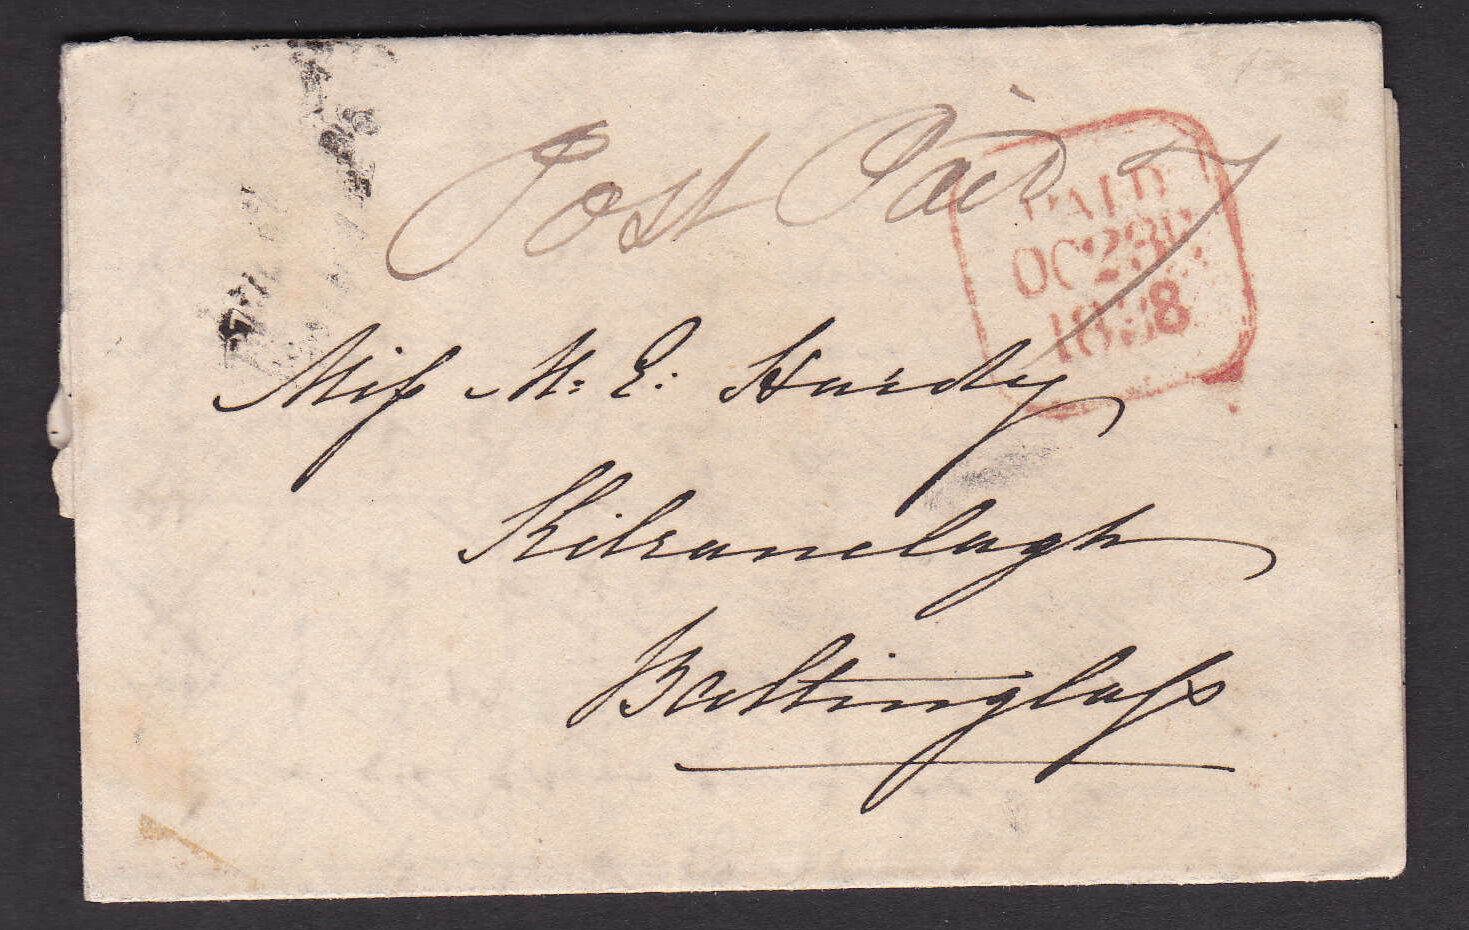 Post Paid
PAID
OC 23
1838
Miſs M: E: Hardy
Kilranelagh
Baltinglaſs